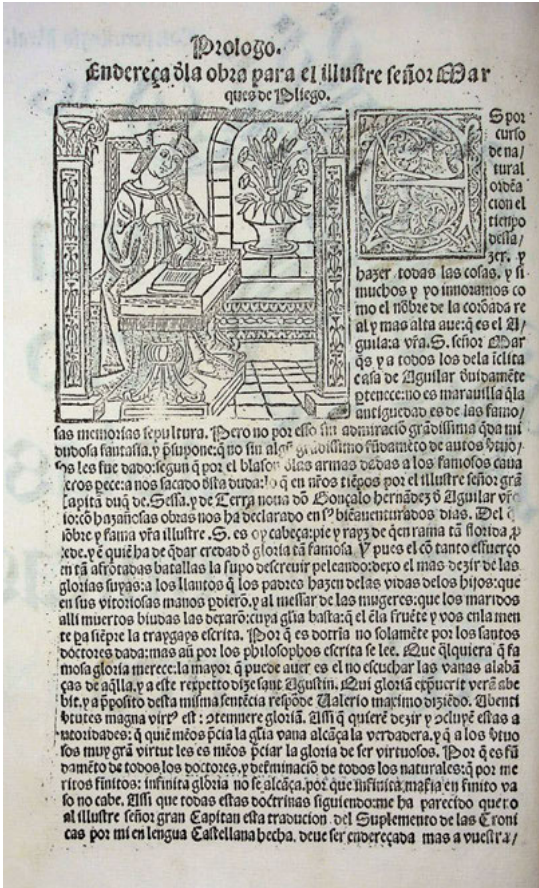 Prologo.
Endereça dla obra para el illustre señor Mar
ques de Pliego.
ES por
curso
de na/
tural
ordẽa
cion el
tiempo
dessa/
zer, y
hazer todas las cosas, y si
muchos y yo innoramos co
mo el nõbre de la corõada re
al y mas alta aue: q̃ es el A/
guila: a vr̃a. S. señor Mar
q̃s y a todos los dela iclita
casa de Aguilar duidamẽte
ptenece: no es marauilla q̃la
antiguedad es de las famo/
sas memorias sepultura. Pero no por esso sin admiraciõ grãdissima q̃da mi
dudosa fantasia, y psupone: q̃ no sin algũ grãdissimo fũdamẽto de autos vtuo/
sos les fue dado: segun q̃ por el blason dlas armas dadas a los famosos caua
eros pece: a nos sacado dsta duda: lo q̃ en nr̃os tiẽpos por el illustre señor grã
Capitã duq̃ de. Sessa. y de Terra noua dõ Gonçalo hernãdez d Aguilar vr̃o
io: cõ hazañosas obras nos ha declarado en sus biẽauenturados dias. Del q̃
nõbre y fama vr̃a illustre. S. es oy cabeça: pie y rayz de q̃en rama tã florida, p
cede. y ẽ quiẽ ha de q̃dar credad d gloria tã famosa. Y pues el cõ tanto esfuerço
en tã afrõtadas batallas la supo descreuir peleando: dexo el mas dezir de las
glorias suyas: a los llantos q̃ los padres hazen delas vidas delos hijos: que
en sus vitoriosas manos pdierõ. y al messar de las mugeres: que los maridos
alli muertos biudas las dexarõ: cuya gl̃ia basta: q̃ el ẽla fruẽte y vos enla men
te pa siẽpre la traygays escrita. Por q̃ es dotria no solamẽte por los santos
doctores dada: mas aũ por los philosophos escrita se lee. Que q̃lquiera q̃ fa
mosa gloria merece: la mayor q̃ puede auer es el no escuchar las vanas alabã
ças de aq̃lla. y a este respetto dize sant Agustin. Qui gloriã expuerit verã abe
bit. y a pposito desta misma sentẽcia respõde Ualerio maximo diziẽdo. Abenti
vtutes magna virtus est: ptemnere gloriã. Assi q̃ quierẽ dezir y pcluyẽ estas a
utoridades: q̃ quiẽ mẽos pcia la gl̃ia vana alcãça la verdadera. y q̃ a los vtuo
sos muy grã virtut les es mẽos pciar la gloria de ser virtuosos. Por q̃ es fũ
damẽto de todos los doctores, y determinaciõ de todos los naturales: q̃ por me
ritos finitos: infinita gloria no se alcãça, por que infinita mafia en finito va
so no cabe. Assi que todas estas doctrinas siguiendo: me ha parecido que ro
al illustre señor gran Capitan esta traducion del Suplemento de las Croni
cas por mi en lengua Castellana hecha, deue ser endereçada mas a vuestra/